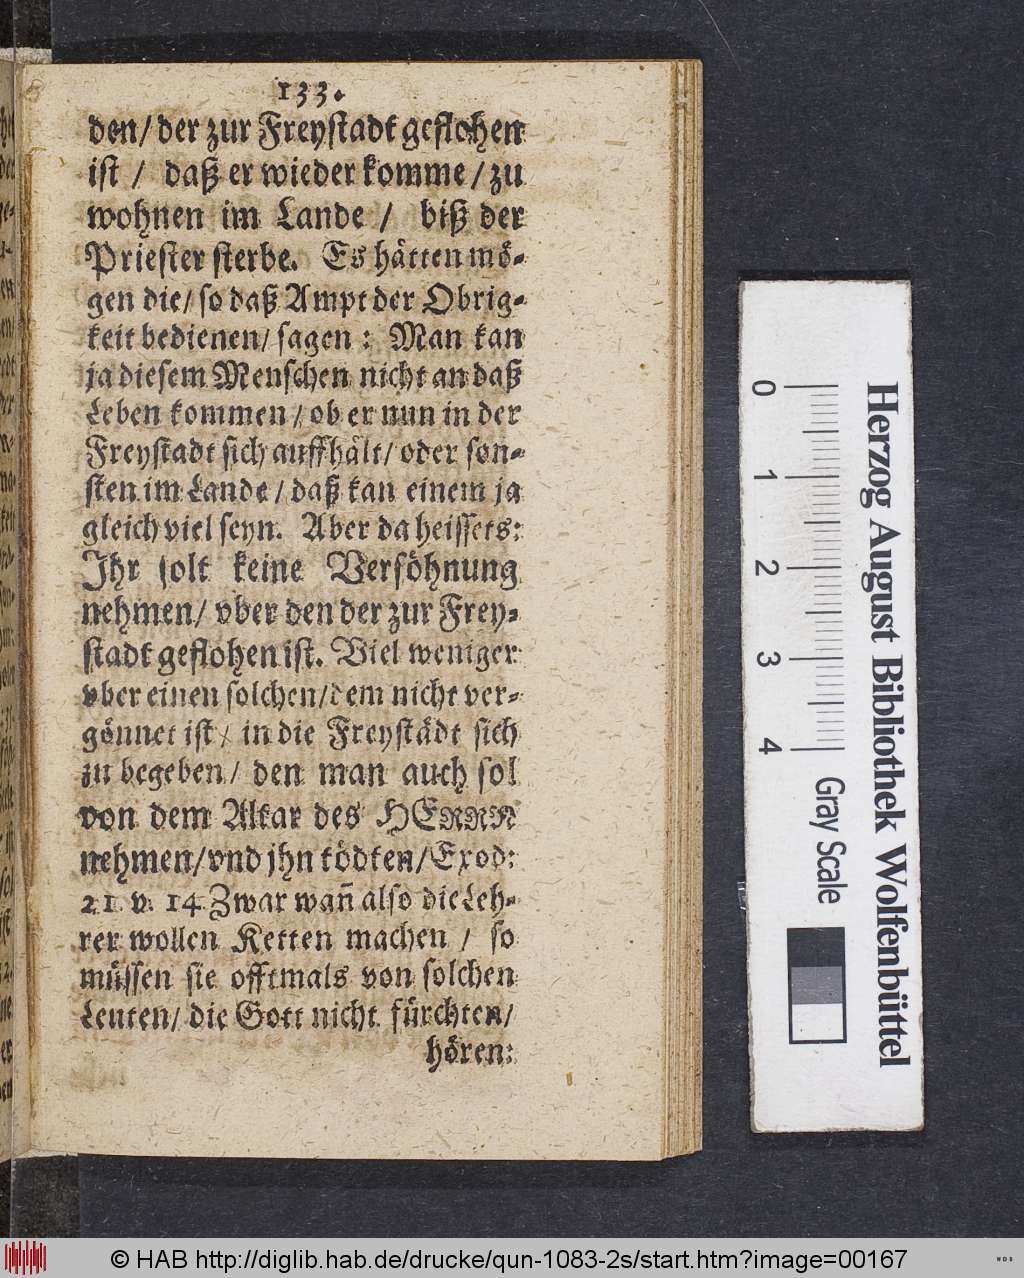 133.
den/ der zur Freystadt geflohen
ist / daß er wieder komme / zu
wohnen im Lande / biß der
Priester sterbe. Es hätten mö-
gen die/ so daß Ampt der Obrig-
keit bedienen/ sagen : Man kan
ja diesem Menschen nicht an daß
Leben kommen / ob er nun in der
Freystadt sich auffhält/ oder son-
sten im Lande / daß kan einem ja
gleich viel seyn. Aber da heissets:
Ihr solt keine Versöhnung
nehmen/ vber den der zur Frey-
stadt geflohen ist. Viel weniger
vber einen solchen/ dem nicht ver-
gönnet ist / in die Freystädt sich
zu begeben / den man auch sol
von dem Altar des HERRN
nehmen/ vnd jhn tödten/ Exod:
21. v. 14. Zwar wañ also die Leh-
rer wollen Ketten machen / so
müssen sie offtmals von solchen
Leuten/ die Gott nicht fürchten/
hören:
Herzog August Bibliothek Wolfenbüttel
0 1 2 3 4
Gray Scale
© HAB http://diglib.hab.de/drucke/qun-1083-2s/start.htm?image=00167